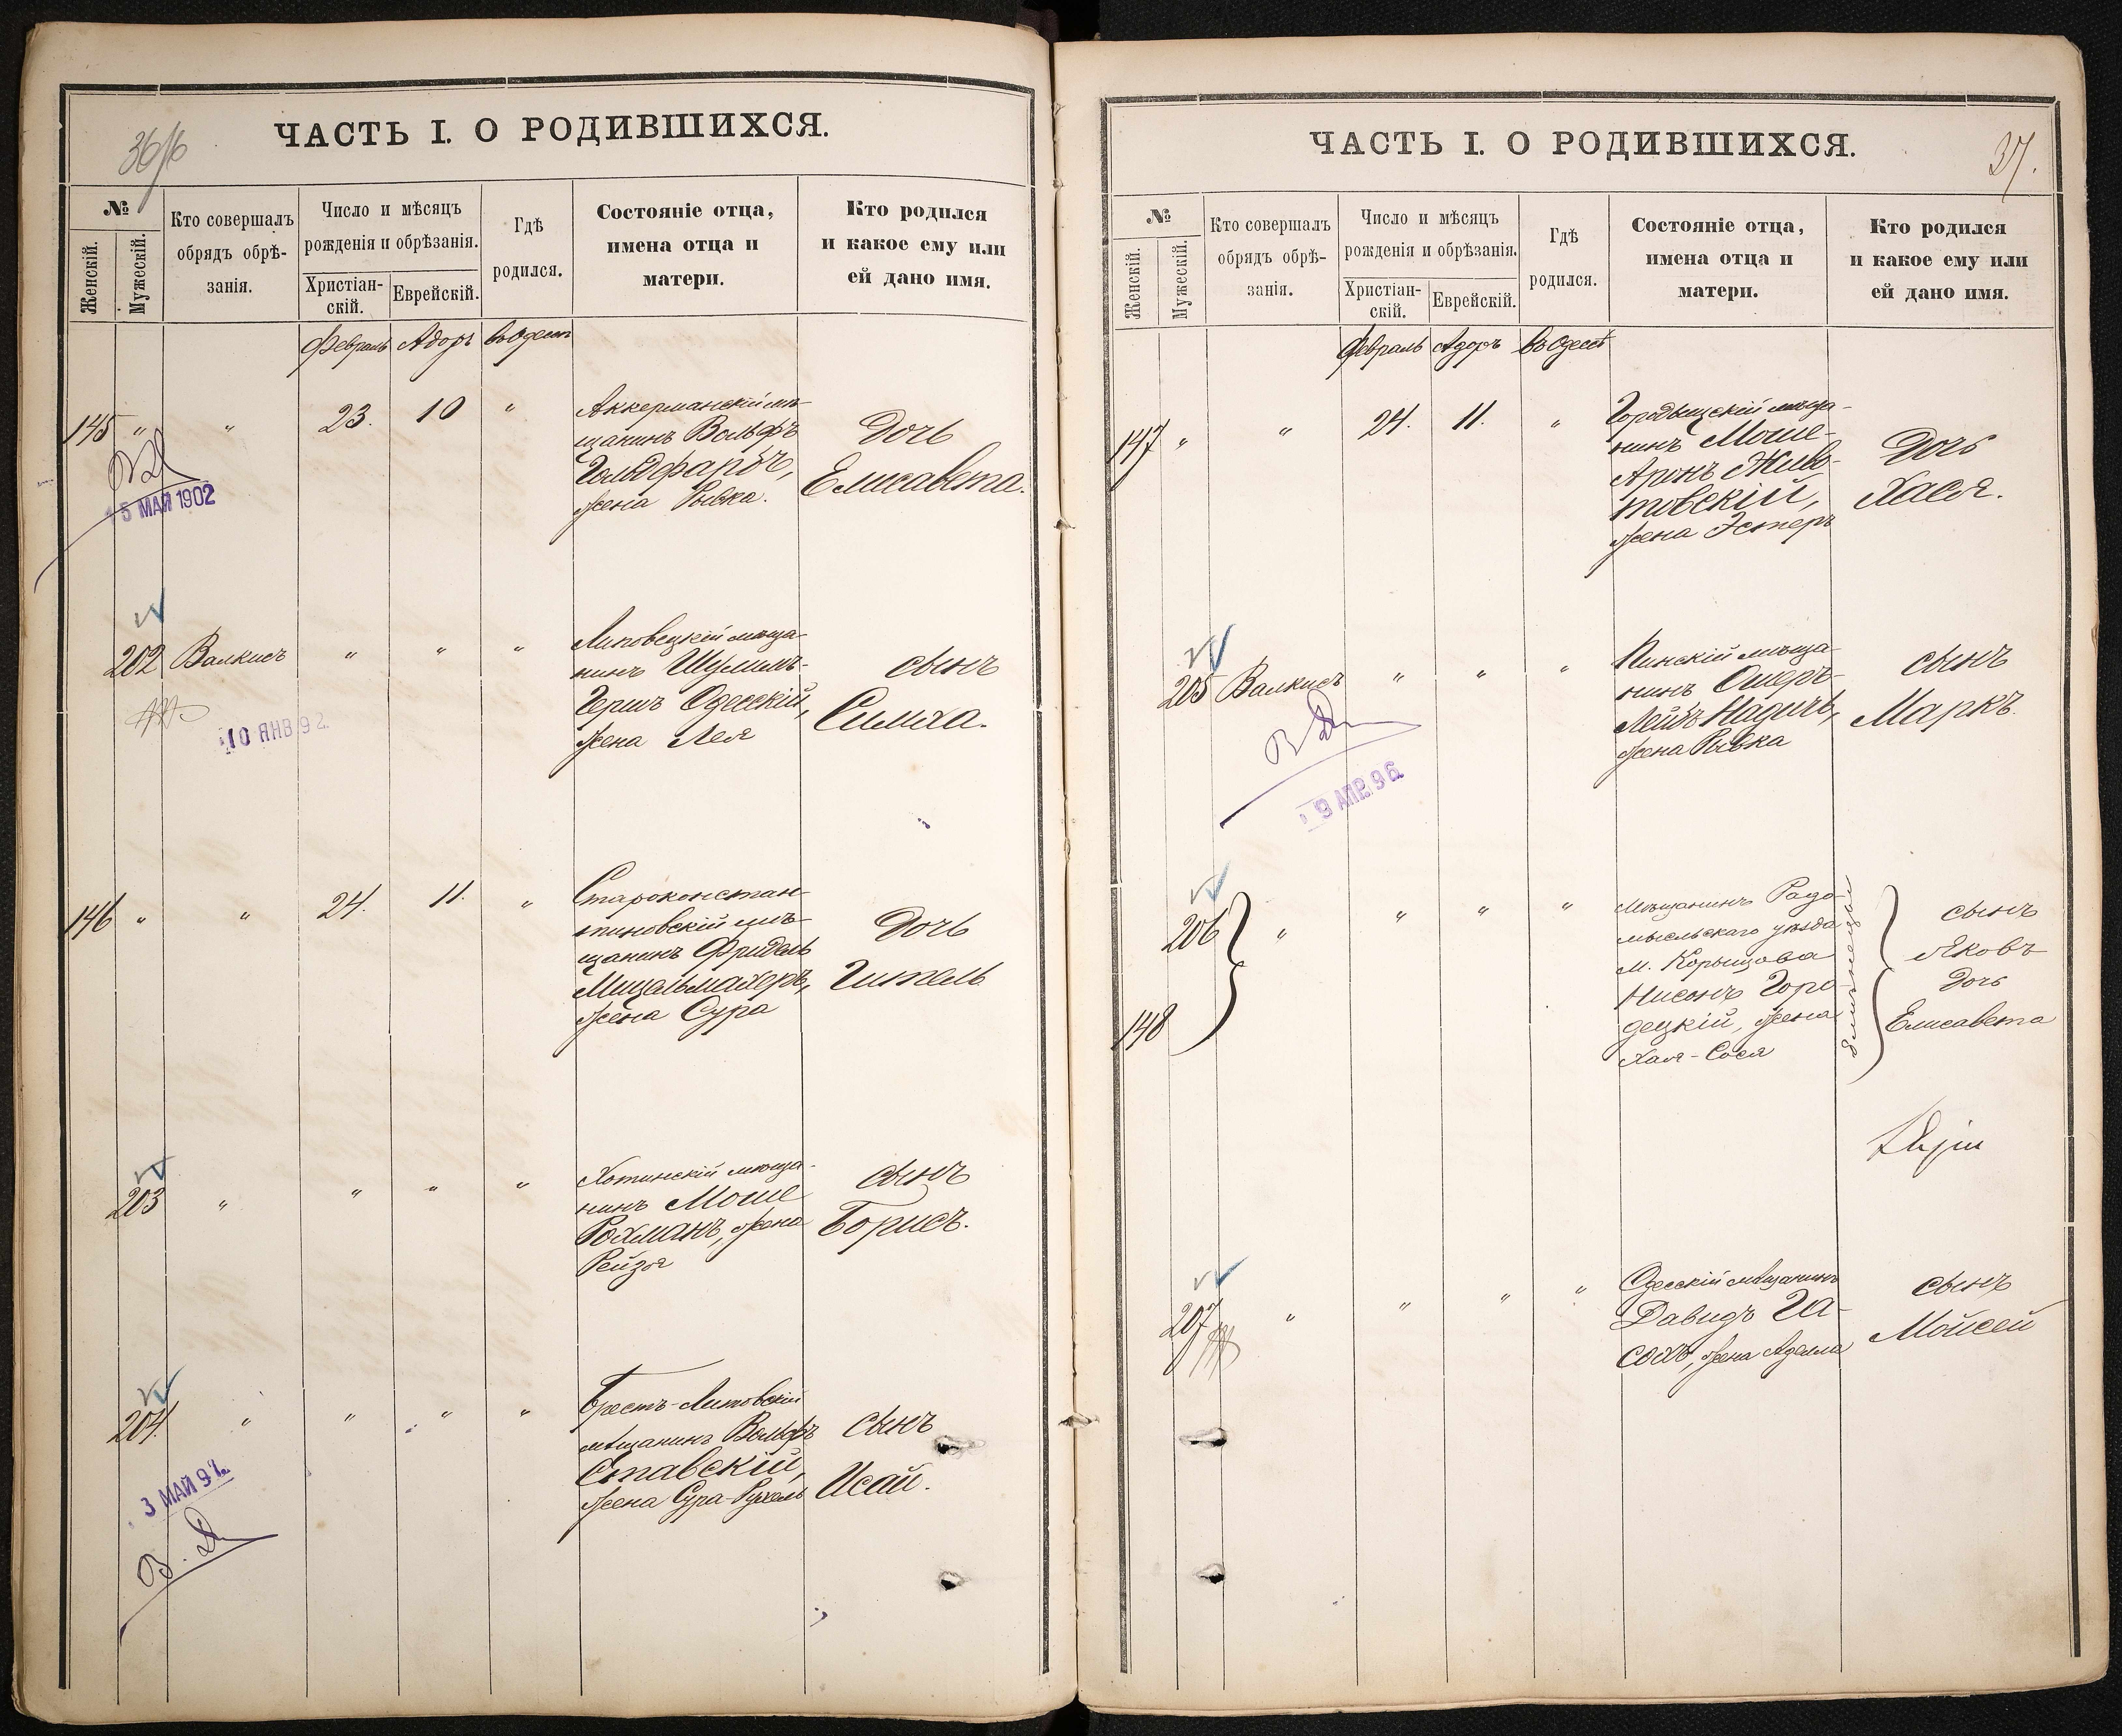 36/б
ЧАСТЬ I. О РОДИВШИХСЯ.
№
Женскій.
Мужескій.
Кто совершалъ
обрядъ обрѣ-
занія.
Число и мѣсяцъ
рожденія и обрѣзанія.
Христіан-
скій.
Еврейскій.
Гдѣ
родился.
Состояніе отца,
имена отца и
матери.
Кто родился
и какое ему или
ей дано имя.
Февраль Адоръ въ Одессѣ
145 " " 23. 10 "
Аккерманскій мѣ-
щанинъ Вольфъ
Гольдфарбъ,
жена Рывка.
Дочь
Елисавета.
5 МАЙ 1902
202 Валкисъ " " "
Липовецкій мѣща-
нинъ Шулимъ-
Гершъ Одесскій,
жена Лея
сынъ
Симха.
10 ЯНВ 92
146 " " 24. 11. "
Староконстан-
тиновскій мѣ-
щанинъ Фридель
Мицельмахеръ,
жена Сура
Дочь
Гитель
203 " " " "
Хотинскій мѣща-
нинъ Моше
Рохманъ, жена
Рейзя
сынъ
Борисъ.
204. " " " "
Брестъ-Литовскій
мѣщанинъ Вольфъ
Ставскій,
жена Сура-Рухель
сынъ
Исай.
3 МАЙ 97
37.
ЧАСТЬ I. О РОДИВШИХСЯ.
№
Женскій.
Мужескій.
Кто совершалъ
обрядъ обрѣ-
занія.
Число и мѣсяцъ
рожденія и обрѣзанія.
Христіан-
скій.
Еврейскій.
Гдѣ
родился.
Состояніе отца,
имена отца и
матери.
Кто родился
и какое ему или
ей дано имя.
Февраль Адоръ въ Одессѣ
147 " " 24. 11. "
Городищскій мѣща-
нинъ Моше-
Аронъ Живо-
товскій,
жена Эстеръ
Дочь
Хася.
205 Валкисъ " " "
Пинскій мѣща-
нинъ Ошеръ-
Лейбъ Надичъ,
жена Рывка
сынъ
Маркъ.
9 АПР. 96
206 " " " "
148
Мѣщанинъ Радо-
мысльскаго уѣзда
м. Корыщова
Нисонъ Горо-
децкій, жена
Хая-Сося
близнецы
сынъ
Яковъ
Дочь
Елисавета
207 " " " "
Одесскій мѣщанинъ
Давидъ Га-
сохъ, жена Аделла
сынъ
Мойсей